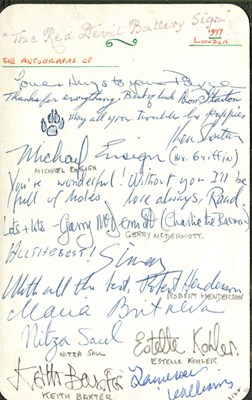 "The Red Devil Battery Sign"
1977
LONDON
THE AUTOGRAPHS OF
Love & Hugs to your
Thanks for everything. Best of luck
May all your troubles be puppies
Ken
Michael Ensign (Mr. Griffin)
MICHAEL ENSIGN
You're wonderful! Without you I'll be
full of holes love always,
Lots + lots - Garry McDermott (Charlie the Barman)
GERRY McDERMOTT.
ALL THE BEST!
With all the best, Robert Henderson
ROBERT HENDERSON
Maria Britneva
Nitza Saul
NITZA SAUL
Estelle Kohler
ESTELLE KOHLER
Keith Baxter
KEITH BAXTER
Williams